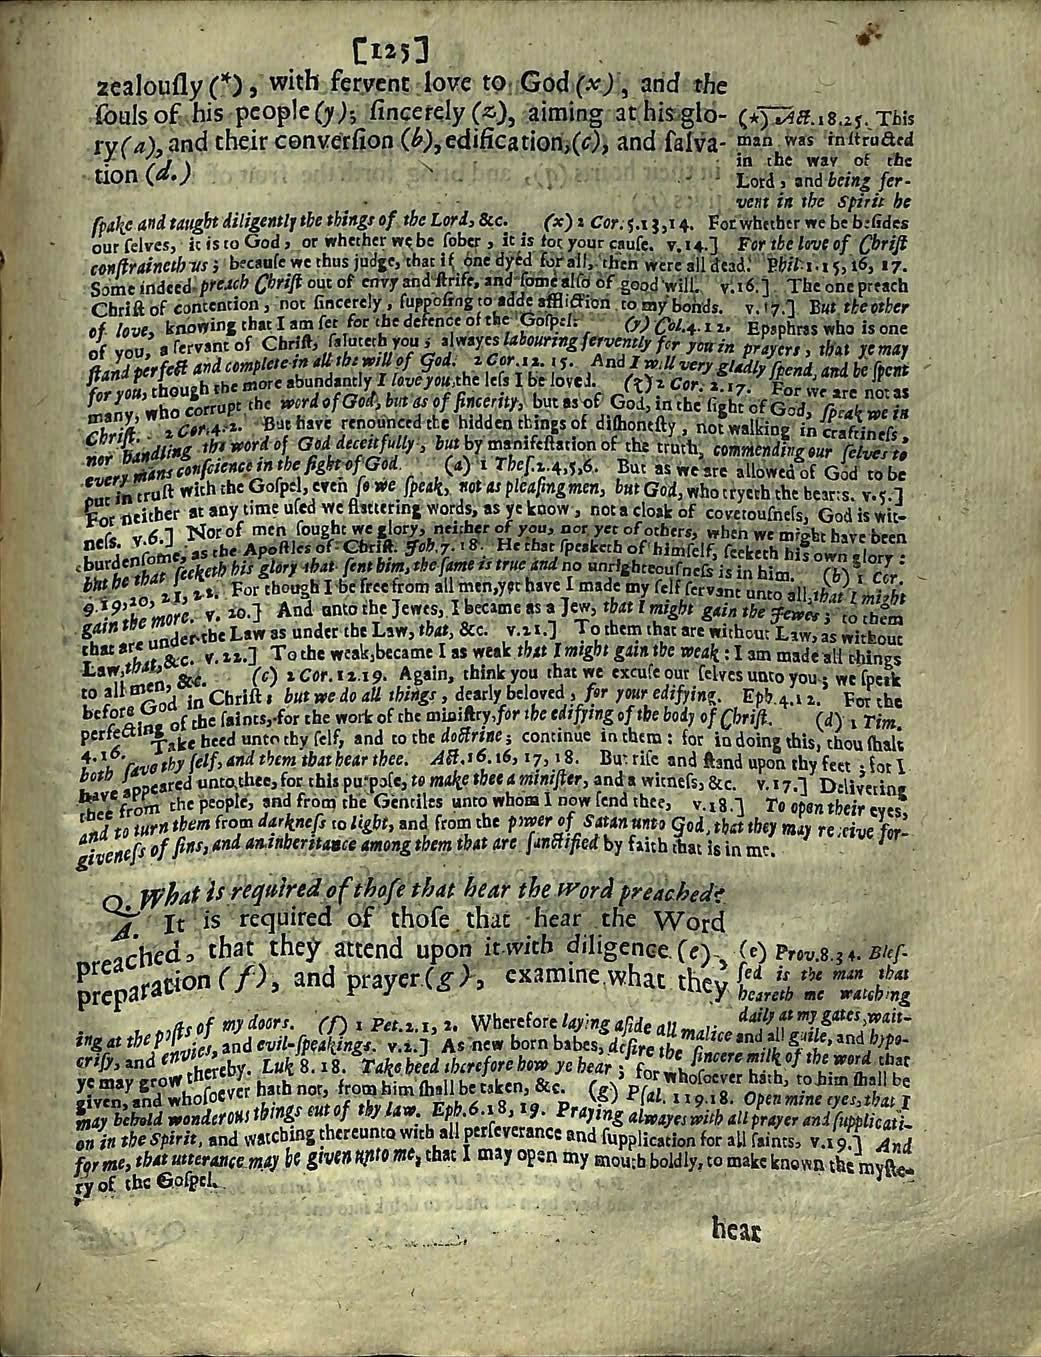 [125]
zealouſly (*), with fervent love to God (x), and the
ſouls of his people (y); ſincerely (z), aiming at his glo-
ry (a), and their converſion (b), edification, (c), and ſalva-
tion (d.)
(*) Act. 18.25. This
man was inſtructed
in the way of the
Lord, and being fer-
vent in the Spirit he
ſpake and taught diligently the things of the Lord, &c. (x) 2 Cor. 5.13,14. For whether we be beſides
our ſelves, it is to God, or whether we be ſober, it is for your cauſe. v.14.] For the love of Chriſt
conſtraineth us; becauſe we thus judge, that if one dyed for all, then were all dead. Phil. 1.15, 16, 17.
Some indeed preach Chriſt out of envy and ſtrife, and ſome alſo of good will. v.16.] The one preach
Chriſt of contention, not ſincerely, ſuppoſing to adde affliction to my bonds. v.17.] But the other
of love, knowing that I am ſet for the defence of the Goſpel. (y) Col. 4.12. Epaphras who is one
of you, a ſervant of Chriſt, ſaluteth you; alwayes labouring fervently for you in prayers, that ye may
ſtand perfect and complete in all the will of God. 2 Cor. 12.15. And I will very gladly ſpend, and be ſpent
for you, though the more abundantly I love you, the leſs I be loved. (z) 2 Cor. 2.17. For we are not as
many, who corrupt the word of God, but as of ſincerity, but as of God, in the ſight of God, ſpeak we in
Chriſt. 2 Cor. 4.2. But have renounced the hidden things of diſhoneſty, not walking in craftineſs,
nor handling the word of God deceitfully, but by manifeſtation of the truth, commending our ſelves to
every mans conſcience in the ſight of God. (a) 1 Theſ. 2.4,5,6. But as we are allowed of God to be
put in truſt with the Goſpel, even ſo we ſpeak, not as pleaſing men, but God, who tryeth the hearts. v.5.]
For neither at any time uſed we flattering words, as ye know, not a cloak of covetouſneſs, God is wit-
neſs. v.6.] Nor of men ſought we glory, neither of you, nor yet of others, when we might have been
burdenſome, as the Apoſtles of Chriſt. Joh. 7.18. He that ſpeaketh of himſelf, ſeeketh his own glory:
but he that ſeeketh his glory that ſent him, the ſame is true and no unrighteouſneſs is in him. (b) 1 Cor.
9.19,20, 21, 22. For though I be free from all men, yet have I made my ſelf ſervant unto all, that I might
gain the more. v. 20.] And unto the Jewes, I became as a Jew, that I might gain the Jewes; to them
that are under the Law as under the Law, that, &c. v.21.] To them that are without Law, as without
Law, that, &c. v.22.] To the weak, became I as weak that I might gain the weak: I am made all things
to all men, &c. (c) 2 Cor. 12.19. Again, think you that we excuſe our ſelves unto you; we ſpeak
before God in Chriſt: but we do all things, dearly beloved, for your edifying. Eph. 4.12. For the
perfecting of the ſaints, for the work of the miniſtry, for the edifying of the body of Chriſt. (d) 1 Tim.
4.16. Take heed unto thy ſelf, and to the doctrine; continue in them: for in doing this, thou ſhalt
both ſave thy ſelf, and them that hear thee. Act. 16.16, 17, 18. But riſe and ſtand upon thy feet; for I
have appeared unto thee, for this purpoſe, to make thee a miniſter, and a witneſs, &c. v.17.] Delivering
thee from the people, and from the Gentiles unto whom I now ſend thee, v.18.] To open their eyes,
and to turn them from darkneſs to light, and from the power of Satan unto God, that they may receive for-
giveneſs of ſins, and an inheritance among them that are ſanctified by faith that is in me.
Q. What is required of thoſe that hear the word preached?
A. It is required of thoſe that hear the Word
preached, that they attend upon it with diligence (e),
preparation (f), and prayer (g), examine what they
(e) Prov. 8.34. Bleſ-
ſed is the man that
heareth me watching
daily at my gates, wait-
ing at the poſts of my doors. (f) 1 Pet. 2.1, 2. Wherefore laying aſide all malice and all guile, and hypo-
criſy, and envies, and evil-ſpeakings. v.2.] As new born babes, deſire the ſincere milk of the word that
ye may grow thereby. Luk 8.18. Take heed therefore how ye hear; for whoſoever hath, to him ſhall be
given, and whoſoever hath not, from him ſhall be taken, &c. (g) Pſal. 119.18. Open mine eyes, that I
may behold wonderous things out of thy law. Eph. 6.18, 19. Praying alwayes with all prayer and ſupplicati-
on in the Spirit, and watching thereunto with all perſeverance and ſupplication for all ſaints, v.19.] And
for me, that utterance may be given unto me, that I may open my mouth boldly, to make known the myſte-
ry of the Goſpel.
hear